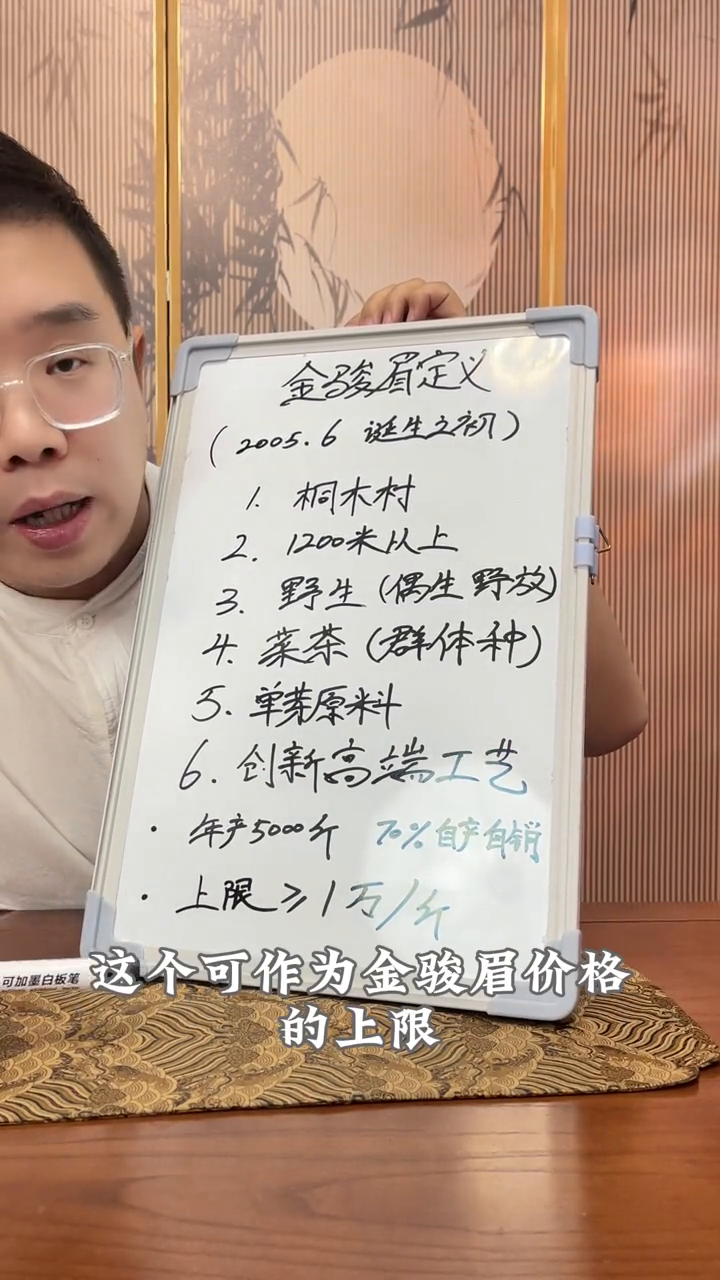 金骏眉定义
（2005.6 诞生之初）
1. 桐木村
2. 1200米以上
3. 野生（偶生野放）
4. 菜茶（群体种）
5. 单芽原料
6. 创新高端工艺
· 年产5000斤 70%自产自销
· 上限≥1万/斤
可加墨白板笔
这个可作为金骏眉价格
的上限